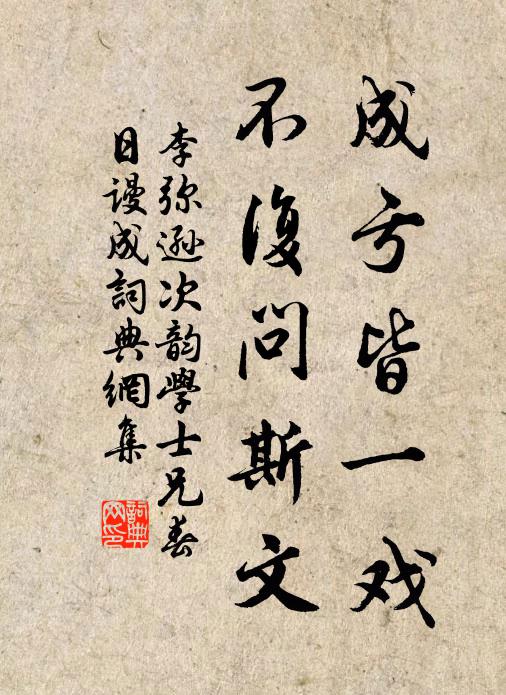 成亏皆一戏
不復问斯文
李弥逊次韵學士兄春
日谩成詞典網集
詞典
网印